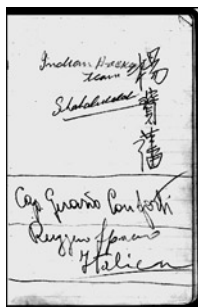 Indian Hockey
Team
楊寶藩
Cap. Gerardo Conforti
Ruggero
Italien